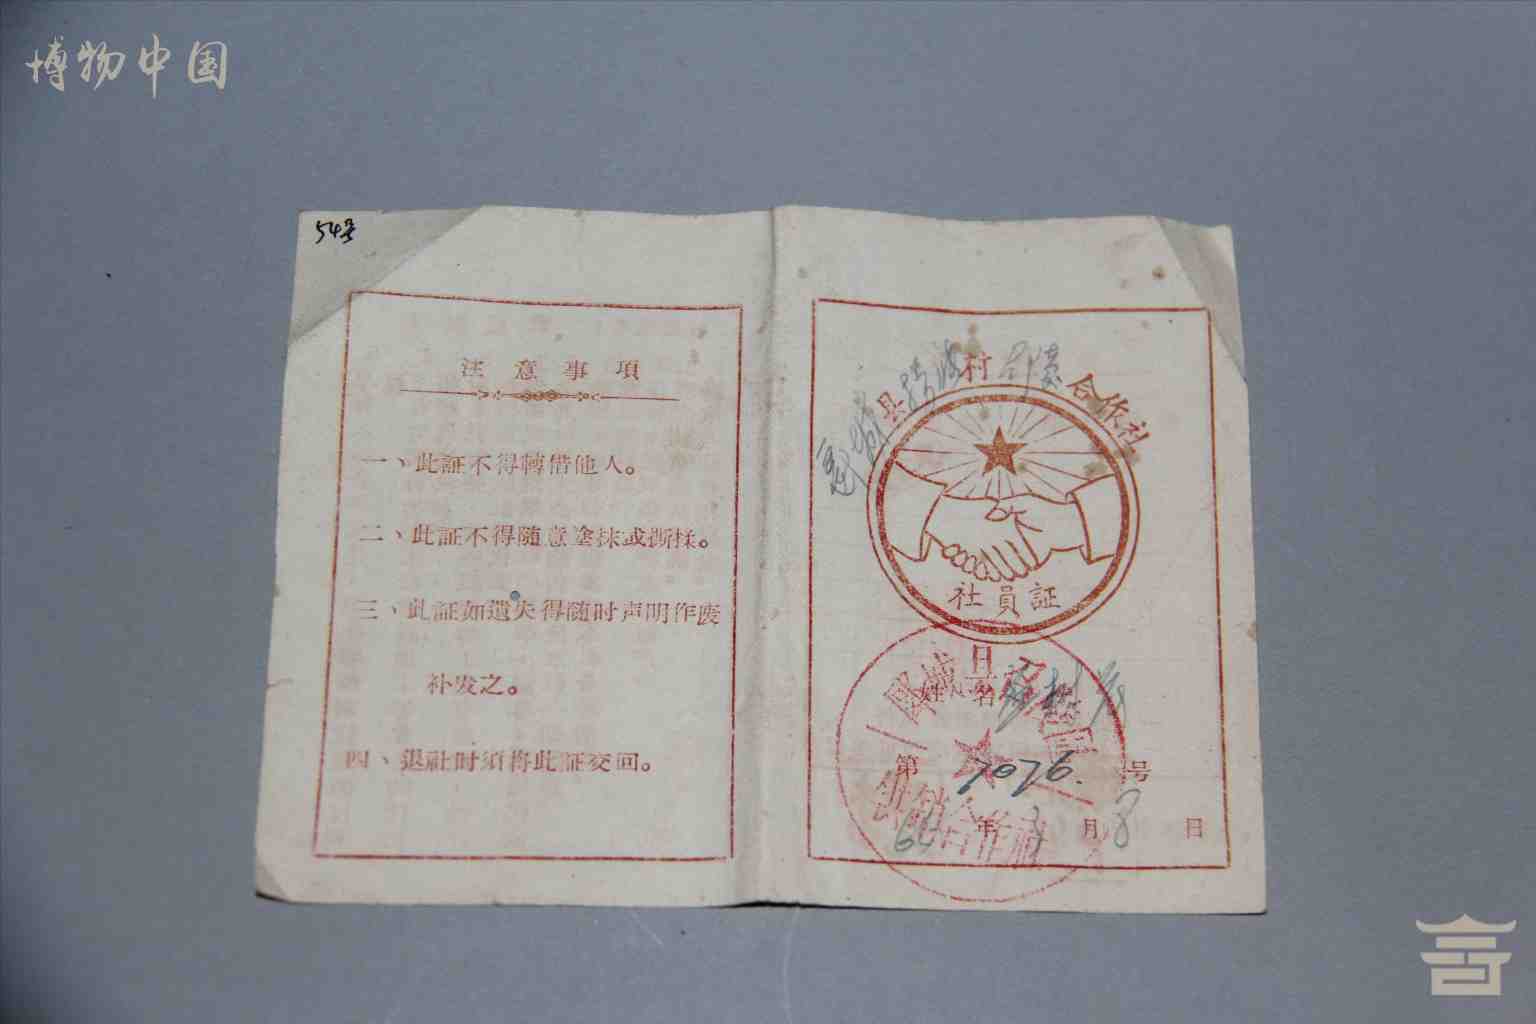 博物中国
54号
注意事項
一、此証不得轉借他人。
二、此証不得随意塗抹或撕揉。
三、此証如遺失得随时声明作废
补发之。
四、退社时須将此証交回。
县 村 合作社
社員証
姓名
第 7076. 号
64年 月 8 日
供銷合作社